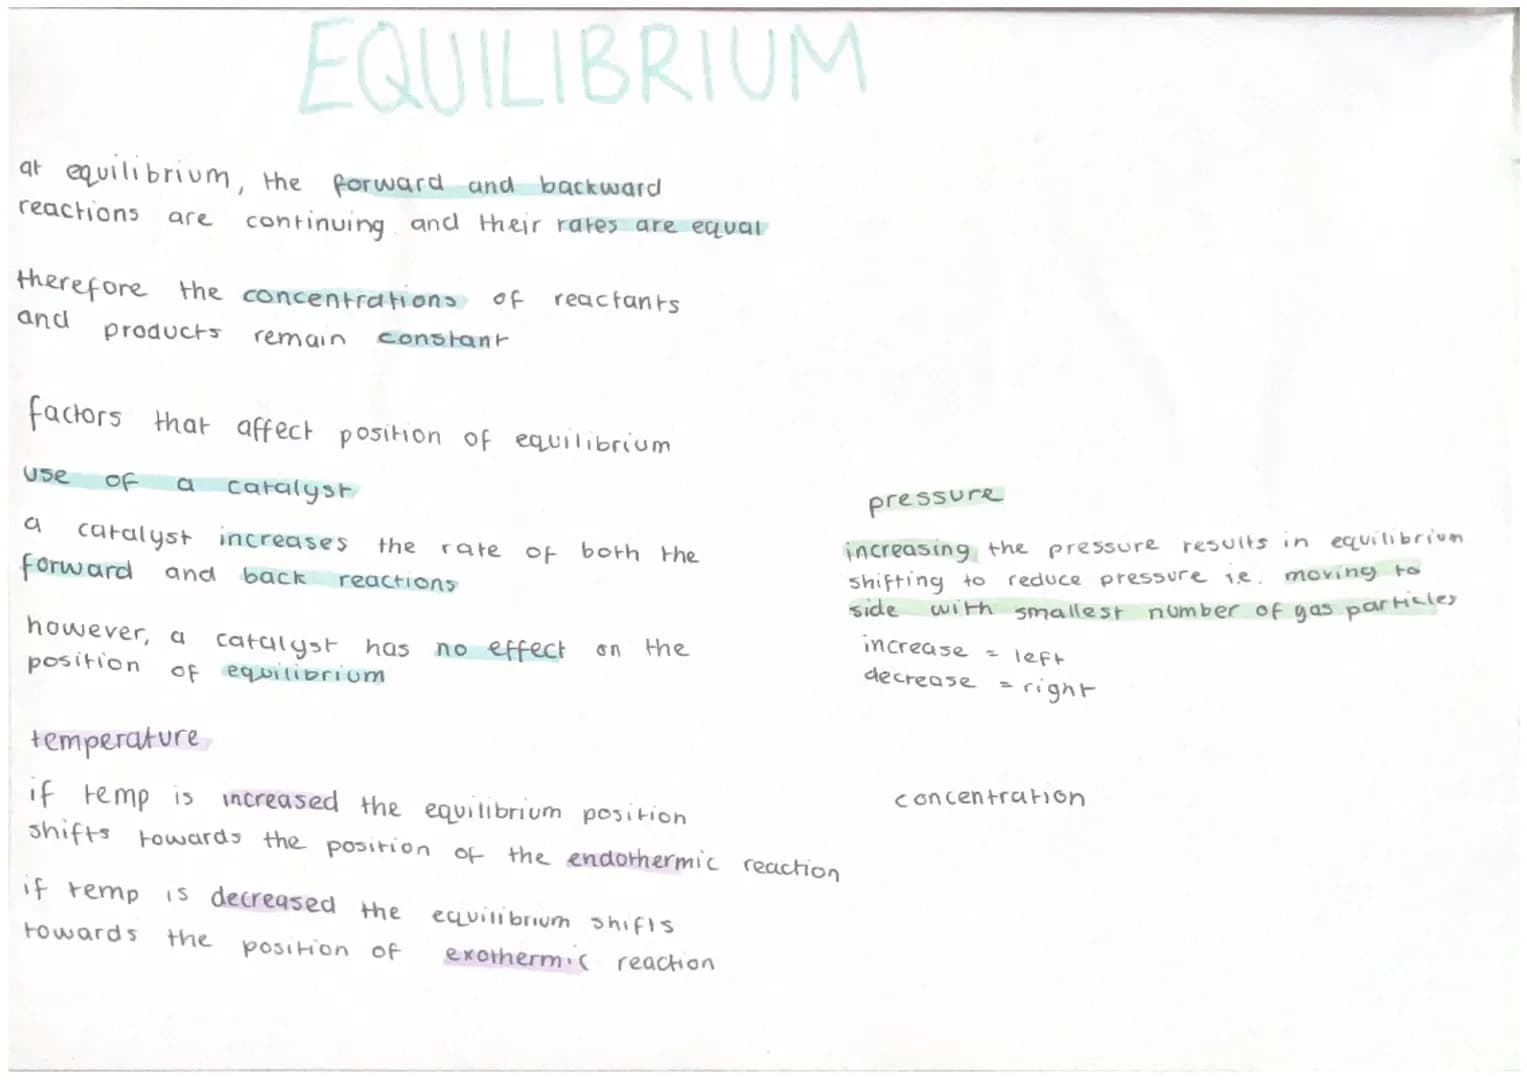 EQUILIBRIUM
at equilibrium, the forward and backward
reactions are continuing and their rates are equal
therefore the concentrations of reactants
and products remain constant
factors that affect position of equilibrium
use of a catalyst
a catalyst increases the rate of both the
forward and back reactions
however, a catalyst has no effect on the
position of equilibrium
temperature
if temp is increased the equilibrium position
shifts towards the position of the endothermic reaction
if temp is decreased the equilibrium shifts
towards the position of exothermic reaction
pressure
increasing the pressure results in equilibrium
shifting to reduce pressure i.e. moving to
side with smallest number of gas particles
increase = left
decrease = right
concentration